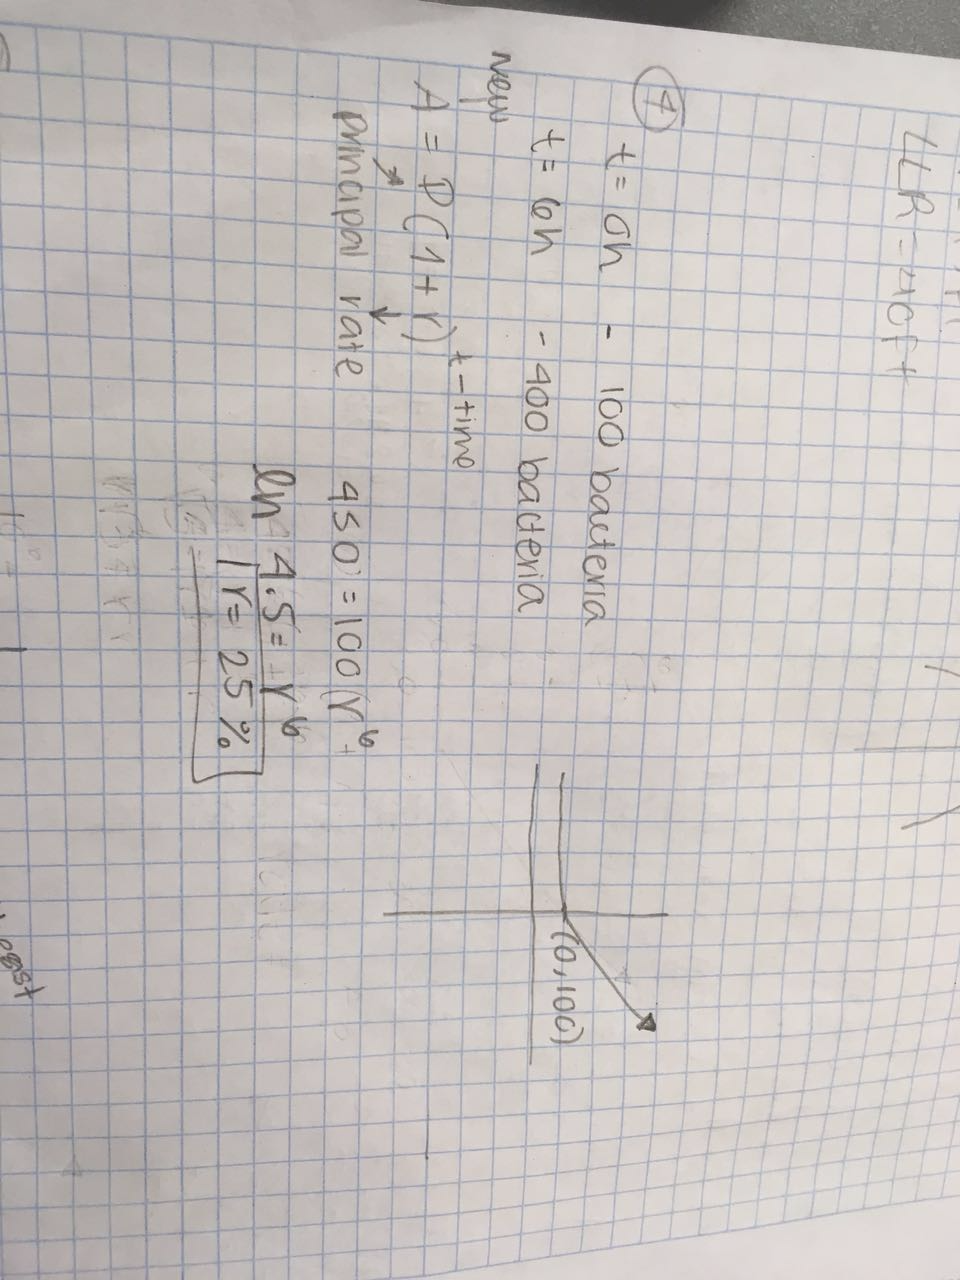 LLR = 40ft
7
t = 0h - 100 bacteria
t = 6h - 400 bacteria
new
A = P(1 + r)^t - time
principal rate
(0,100)
450 = 100(r^6
ln 4.5 = r^6
r = 25%